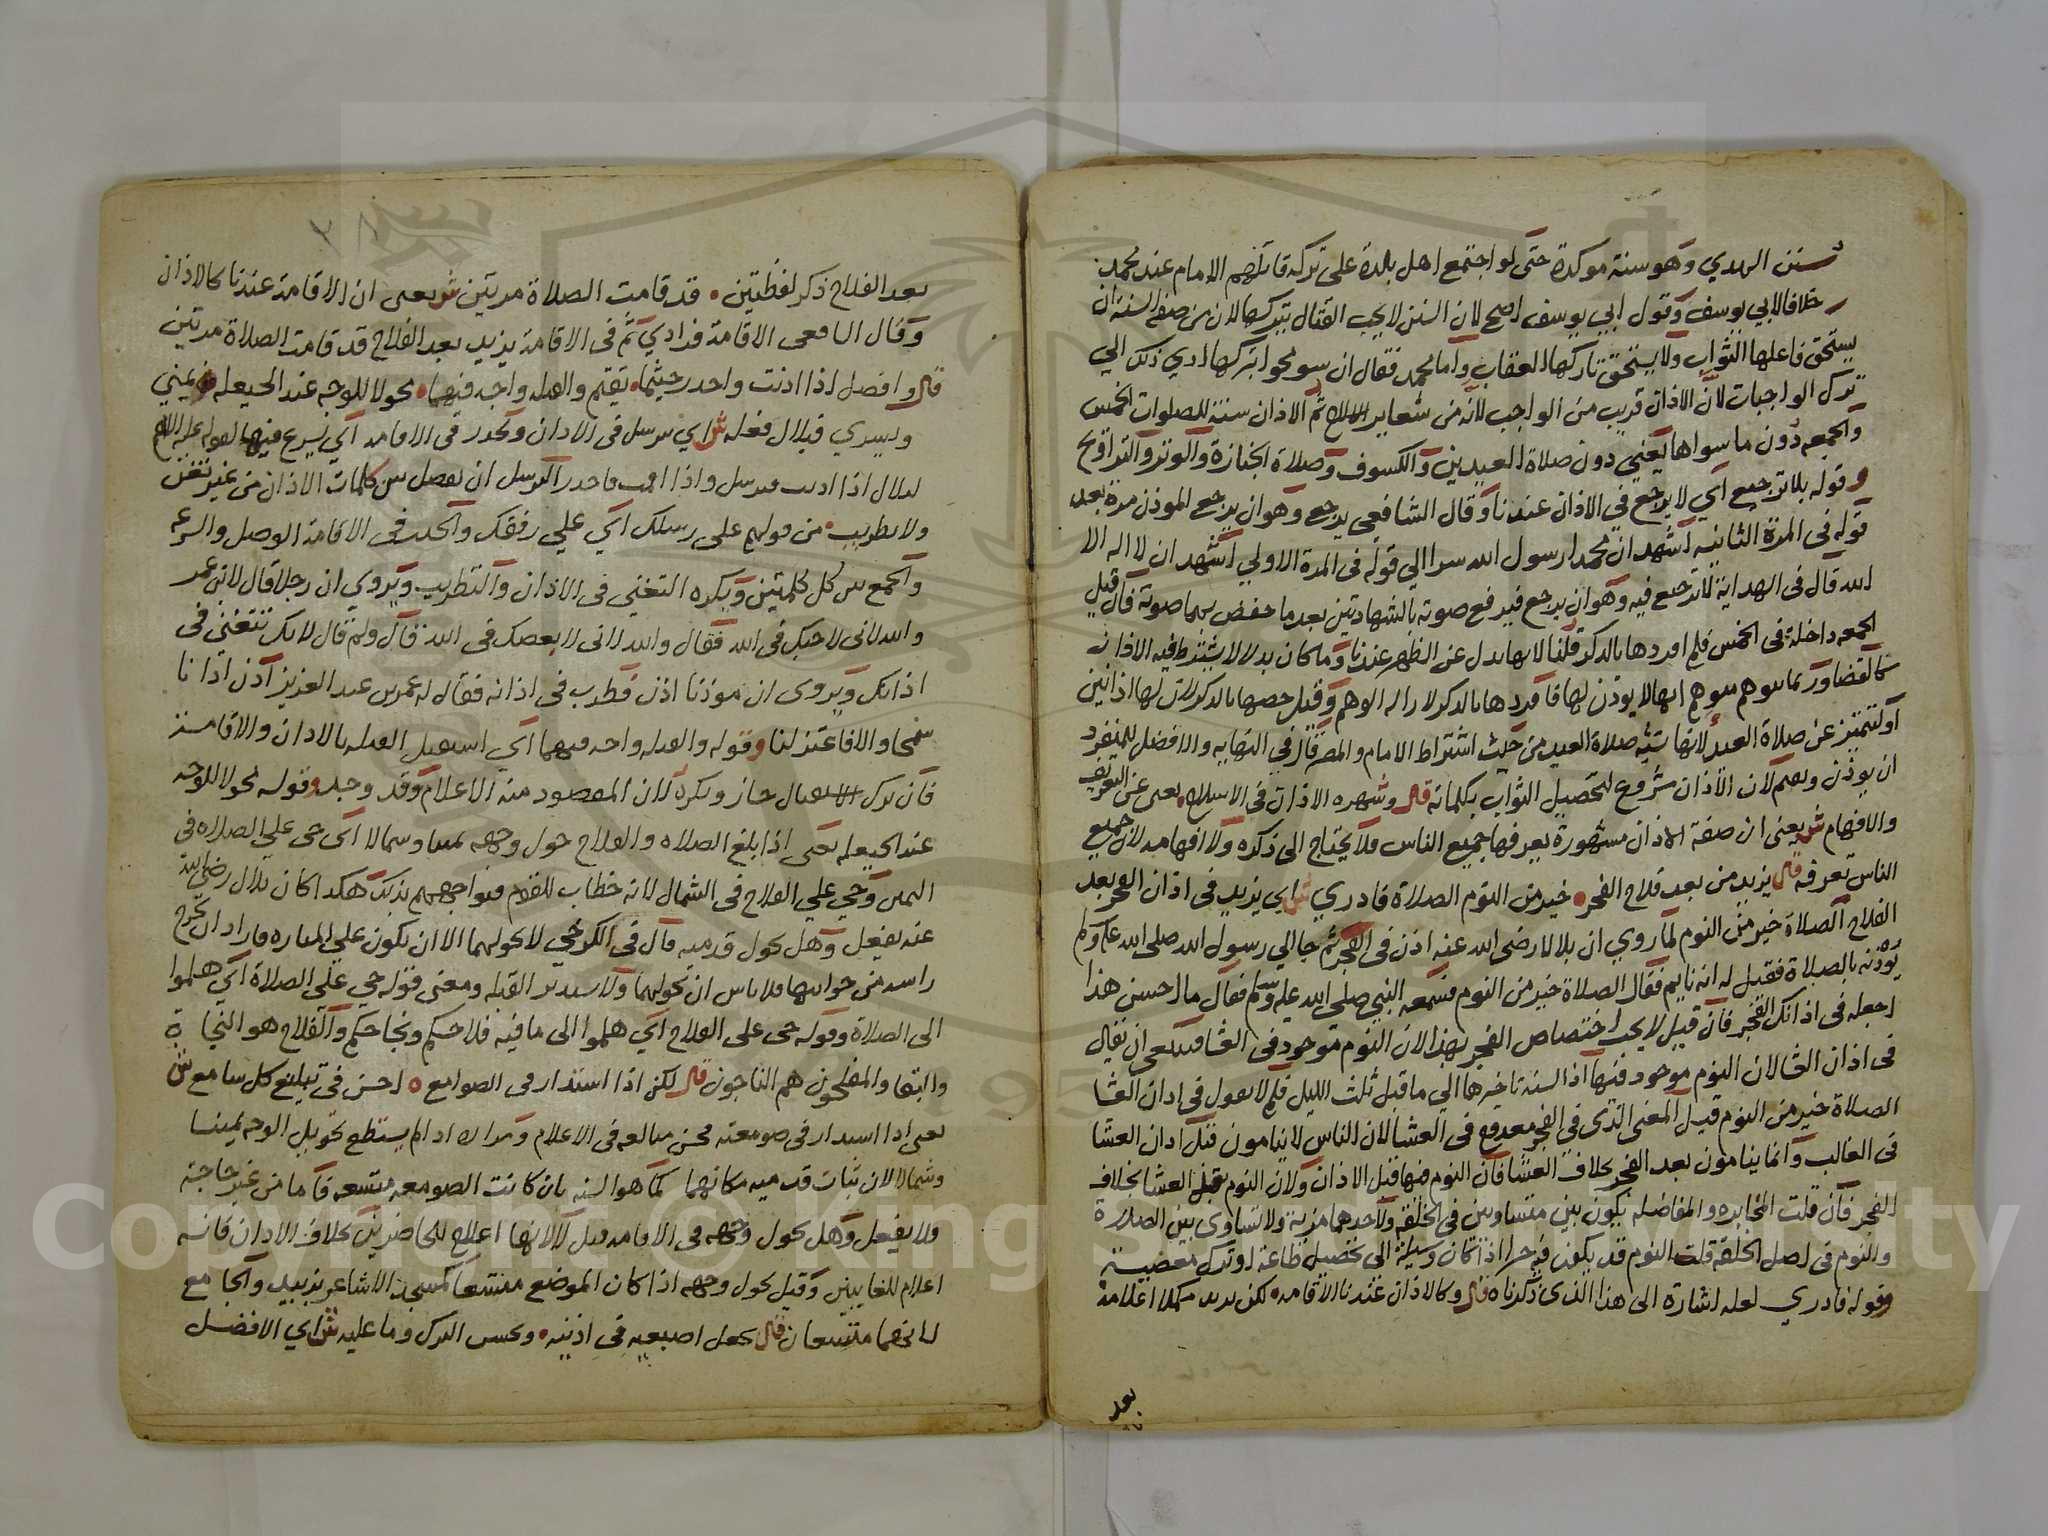 سنن الهدي وهو سنة موكدة حتى لو اجتمع اهل بلدة على تركه قاتلهم الامام عند محمد
خلافا لابي يوسف وقول ابي يوسف اصح لان السنن لا يجب القتال بتركها لان من صفة السنة ان
يستحق فاعلها الثواب ولا يستحق تاركها العقاب واما محمد فقال ان سومحوا بتركها ادي ذلك الي
ترك الواجبات لان الاذان قريب من الواجب لانه من شعاير الاسلام ثم الاذان سنة للصلوات الخمس
والجمعه دون ما سواها يعني دون صلاة العيدين والكسوف وصلاة الجنازة والوتر والتراويح
وقوله بلا ترجيع اي لا يرجع في الاذان عندنا وقال الشافعي يرجع وهو ان يرجع الموذن مرة بعد
قوله في المرة الثانيه اشهد ان محمدا رسول الله سرا الي قوله في المرة الاولي اشهد ان لا اله الا
الله قال في الهداية لا ترجيع فيه وهو ان يرجع فيرفع صوته بالشهادتين بعد ما خفض بهما صوته فان قيل
الجمعه داخلة في الخمس فلم افردها بالدكر قلنا لانها بدل عن الظهر عندنا وما كان بدلا لا يشترط فيه الاذان
كالقضا وربما يتوهم متوهم انها لا يوذن لها فافردها بالدكر لازالة الوهم وقيل خصها بالدكر لان لها اذانين
او لتتميز عن صلاة العيد لانها تشبه صلاة العيد من حيث اشتراط الامام والمصر قال في النهايه والافضل للمنفرد
ان يوذن ويقيم لان الاذان شروع لتحصيل الثواب بكلماته قال وشهره الاذان في الاسلام يغني عن التعريف
والافهام ش يعني ان صفة الاذان مشهورة يعرفها جميع الناس فلا يحتاج الى ذكره ولا افهامه لان جميع
الناس تعرفه قال يزيد من بعد فلاح الفجر خير من النوم الصلاة فادري ش اي يزيد في اذان الفجر بعد
الفلاح الصلاة خير من النوم لما روي ان بلالا رضي الله عنه اذن في الفجر ثم جا الي رسول الله صلى الله عليه وسلم
يوذنه بالصلاة فقيل له انه نايم فقال الصلاة خير من النوم فسمعه النبي صلى الله عليه وسلم فقال ما احسن هذا
اجعله في اذانك الفجر فان قيل لا يجب اختصاص الفجر بهذا لان النوم موجود في العشا فينبغي ان يقال
في اذان العشا لان النوم موجود فيها اذ السنة تاخيرها الي ما قبل ثلث الليل فلم لا يقول في اذان العشا
الصلاة خير من النوم قيل المعنى الذي في الفجر معدوم في العشا لان الناس لا ينامون قبل اذان العشا
في الغالب وانما ينامون بعد الفجر بخلاف العشا فان النوم فيها قبل الاذان ولان النوم قبل العشا بخلاف
الفجر فان قلت المخايره والمفاضله يكون بين متساويين في الخلقة ولاحدهما مزية ولا تساوى بين الصلاة
والنوم في اصل الخلقة قلت النوم قد يكون خيرا اذا كان وسيلة الى تحصيل طاعة او ترك معصية
وقوله فادري لعله اشارة الى هذا الذي ذكرناه قال وكالاذان عندنا الاقامه لكن يزيد مكملا اعلامه
بعد
٣٨
بعد الفلاح ذكر لفظتين قد قامت الصلاة مرتين ش يعنى ان الاقامة عندنا كالاذان
وقال الشافعي الاقامة فرادي ثم في الاقامة يزيد بعد الفلاح قد قامت الصلاة مرتين
قال وافصل اذا اذنت واحدر حيثما تقيم والقبله واجه فيهما محولا للوجه عند الحيعله يمني
ويسري فبلال فعله ش اي يترسل في الاذان ويحدر في الاقامه اي يسرع فيها لقوله عليه السلام
لبلال اذا اذنت فترسل واذا اقمت فاحدر الترسل ان يفصل بين كلمات الاذان من غير تغن
ولا تطريب من قولهم على رسلك اي علي رفقك والحدر في الاقامة الوصل والسرعه
والجمع بين كل كلمتين ويكره التغني في الاذان والتطريب ويروي ان رجلا قال لابن عمر
والله لاني لاحبك في الله فقال والله لاني لابغضك في الله قال ولم قال لانك تتغنى في
اذانك ويروى ان موذنا اذن فطرب في اذانه فقال له عمر بن عبد العزيز اذن اذانا
سمحا والا فاعتزلنا وقوله والقبله واجه فيهما اي استقبل القبله بالاذان والاقامة
فان ترك الاستقبال جاز ويكره لان المقصود منه الاعلام وقد وجد وقوله محولا للوجه
عند الحيعله يعني اذا بلغ الصلاه والفلاح حول وجهه يمينا وشمالا اي حي علي الصلاه في
اليمين وحي علي الفلاح في الشمال لانه خطاب للقوم فيواجههم بذلك هكذا كان بلال رضي الله
عنه يفعل وهل يحول قدميه قال في الكرخي لا يحولهما الا ان يكون علي المناره فاراد ان يخرج
راسه من جوانبها فلا باس ان يحولهما ولا يستدبر القبله ومعنى قوله حي على الصلاة اي هلموا
الى الصلاة وقوله حي على الفلاح اي هلموا الى ما فيه فلاحكم ونجاحكم والفلاح هو النجاة
والبقا والمفلحون هم الناجون قال لكن اذا استدار في الصوامع احسن في تبليغ كل سامع ش
يعني اذا استدار في صومعته فحسن مبالغه في الاعلام ومراده اذا لم يستطع تحويل الوجه يمينا
وشمالا لان ثبات قدميه مكانهما كما هو السنه بان كانت الصومعه متسعه فاما من غير حاجة
فلا يفعل وهل يحول وجهه في الاقامه قيل لا لانها اعلام للحاضرين بخلاف الاذان فانه
اعلام للغايبين وقيل يحول وجهه اذا كان الموضع متسعا كمسجد الاشاعر بزبيد والجامع
لانهما متسعان قال يجعل اصبعيه في اذنيه ويحسن الترك وما عليه ش اي الافضل
Copyright © King Saud University